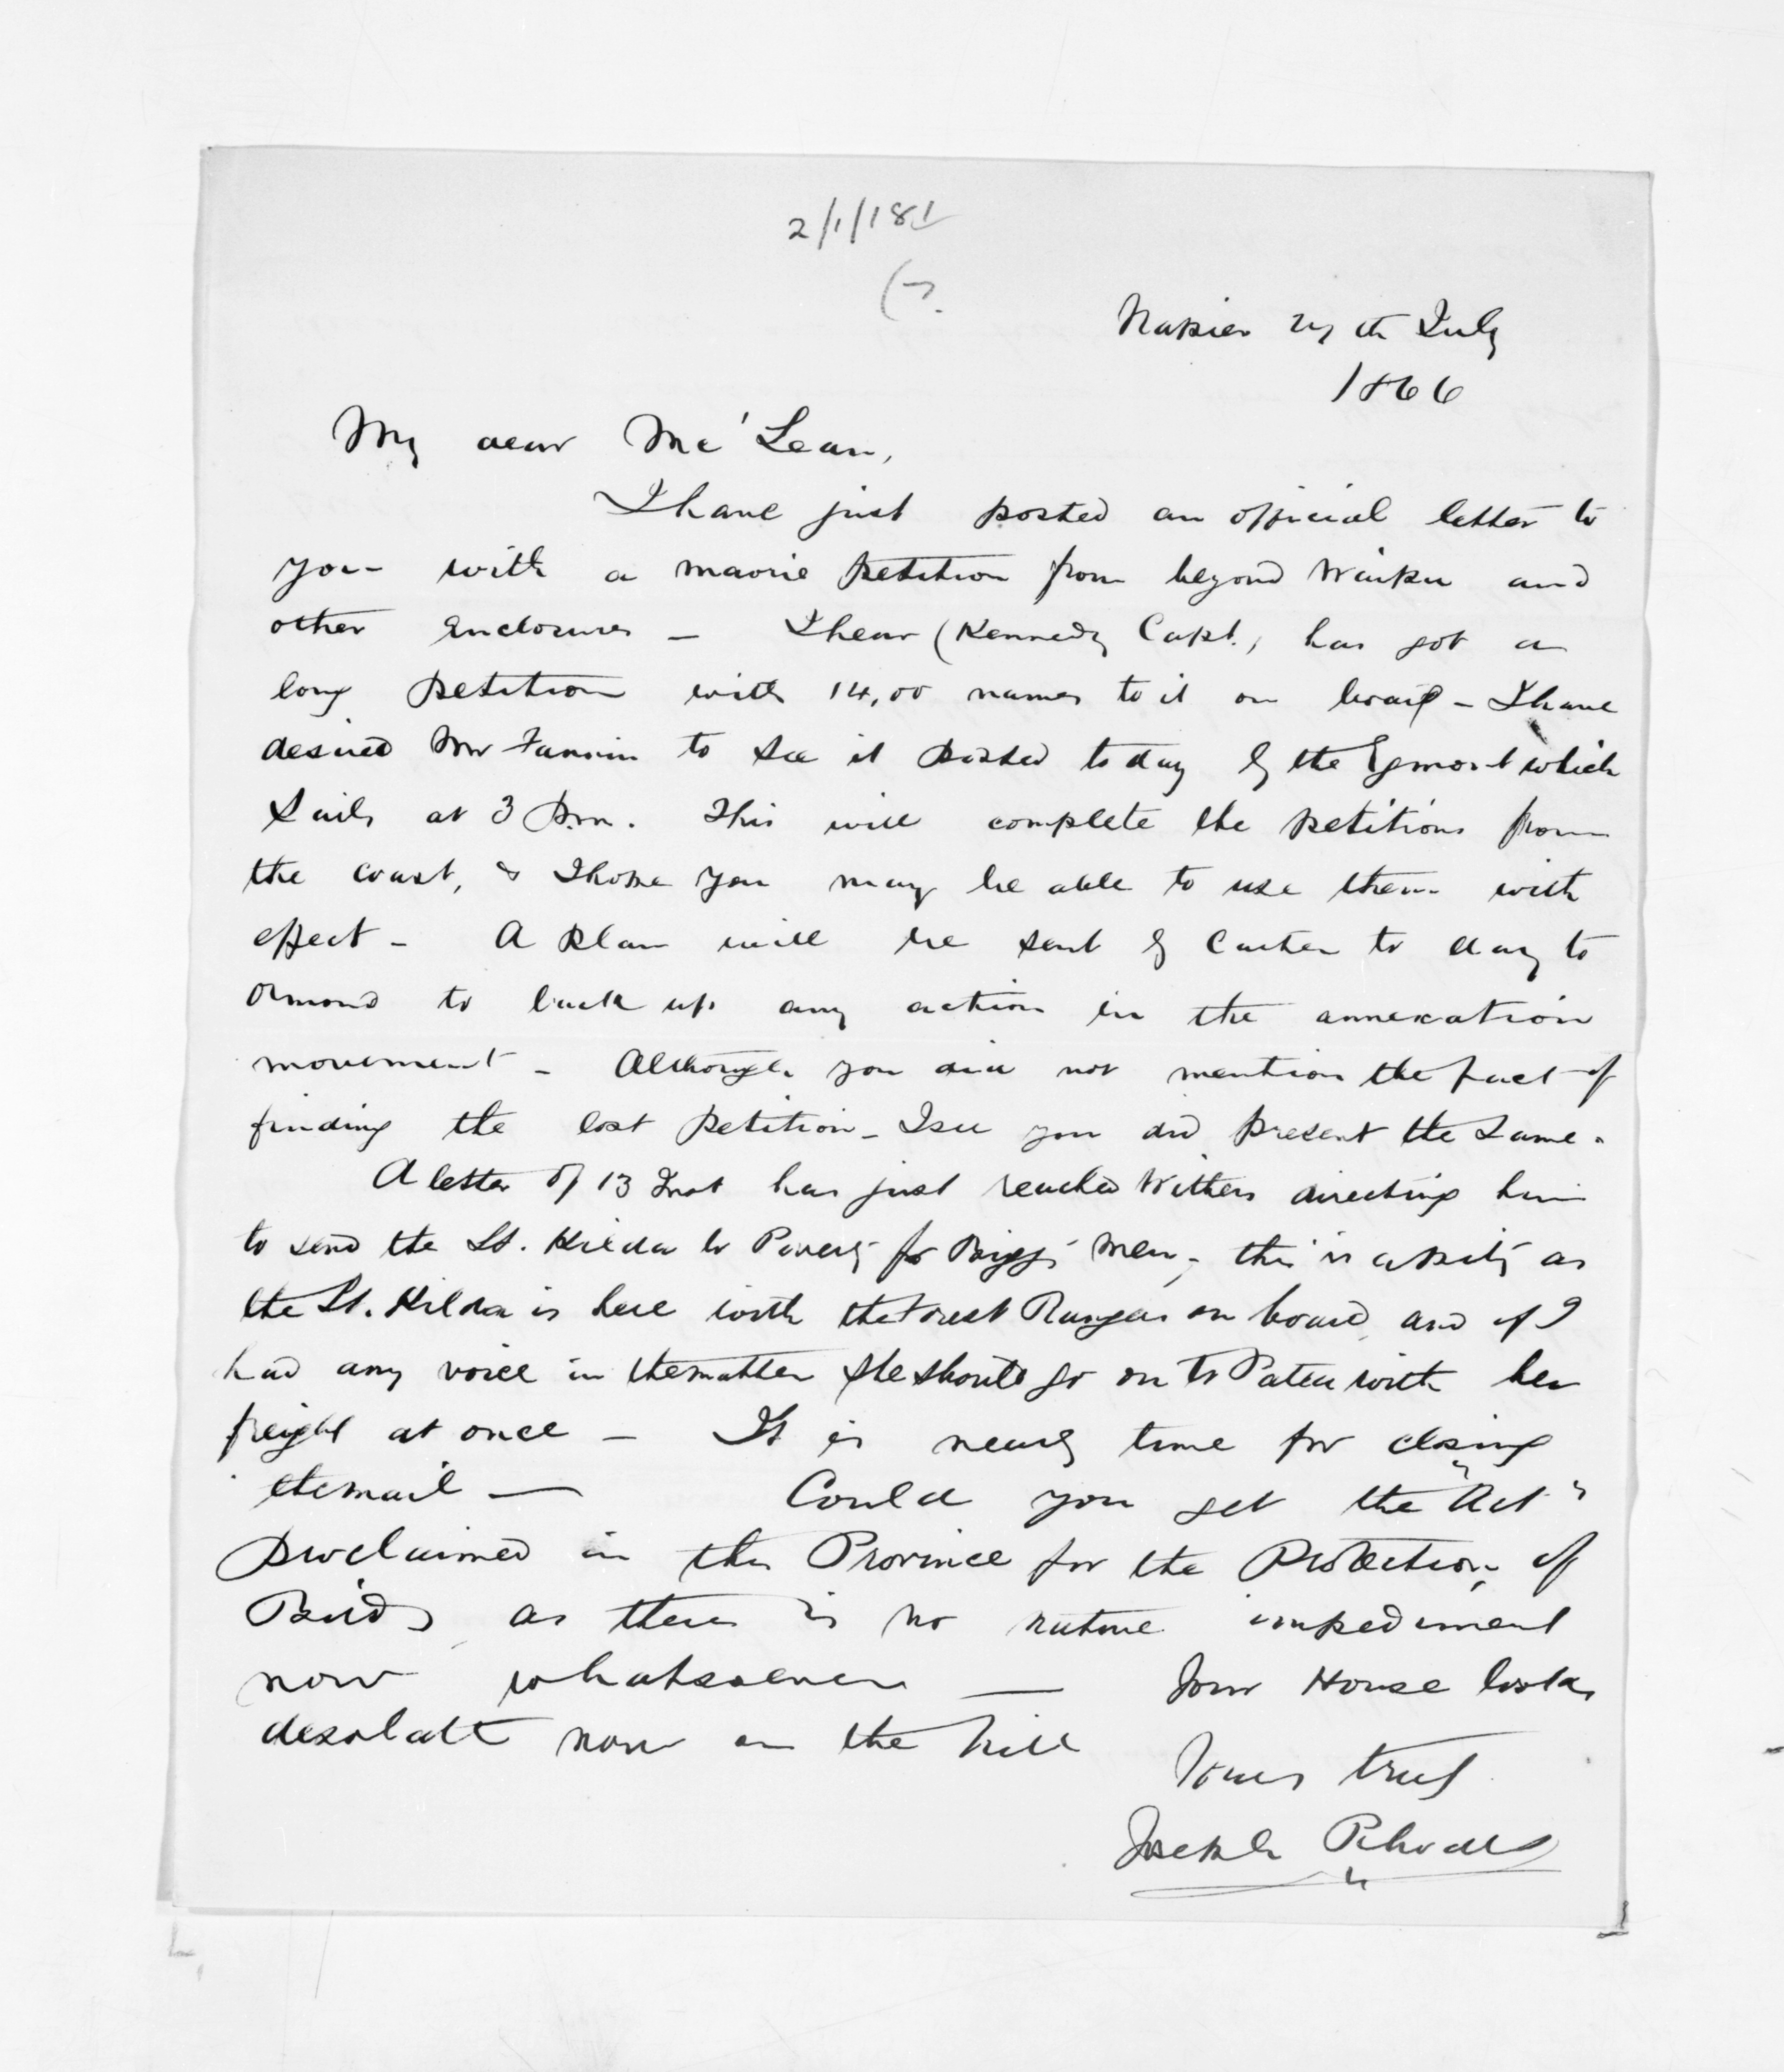 2/1/181
(7.
Napier 27th July
1866
My dear McLean,
I have just posted an official letter to
you with a maorie petition from beyond Waipu and
other enclosures — I hear (Kennedy Capt.) has got a
long petition with 14,00 names to it on board - I have
desired Mr Fannin to see it posted today by the Egmont which
sails at 3 p.m. This will complete the petitions from
the coast, & I hope you may be able to use them with
effect - A plan will be sent by Carter to day to
Ormond to back up any action in the annexation
movement - Although you did not mention the fact of
finding the lost petition - I see you did present the same.
A letter of 13 Inst has just reached Withers directing him
to send the St. Kilda to Poverty for Biggs' men, this is a pity as
the St. Kilda is here with the Forest Rangers on board, and if I
had any voice in the matter she should go on to Patea with her
freight at once — It is nearly time for closing
the mail — Could you get the "Act"
proclaimed in this Province for the Protection of
Birds, as there is no native impediment
now whatsoever — Your House looks
desolate now on the hill
Yours truly
Joseph Rhodes